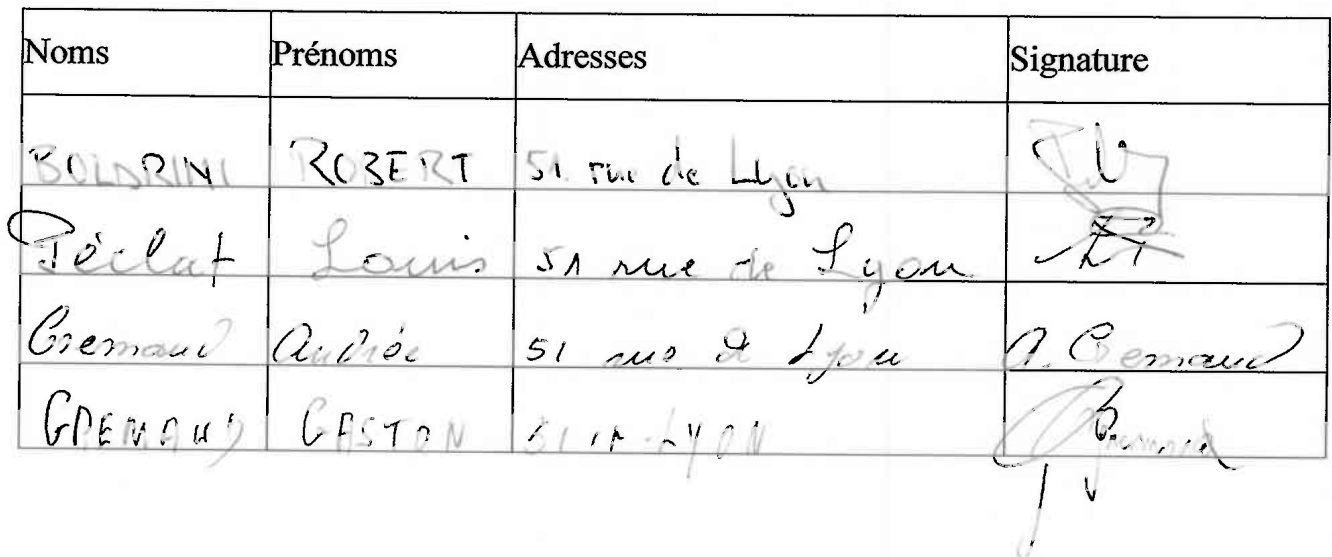 Noms Prénoms Adresses Signature
BOLDRINI ROBERT 51 rue de Lyon
Péclat Louis 51 rue de Lyon
Gremaud Andrée 51 rue de Lyon A. Gremaud
GREMAUD GASTON 51 LYON